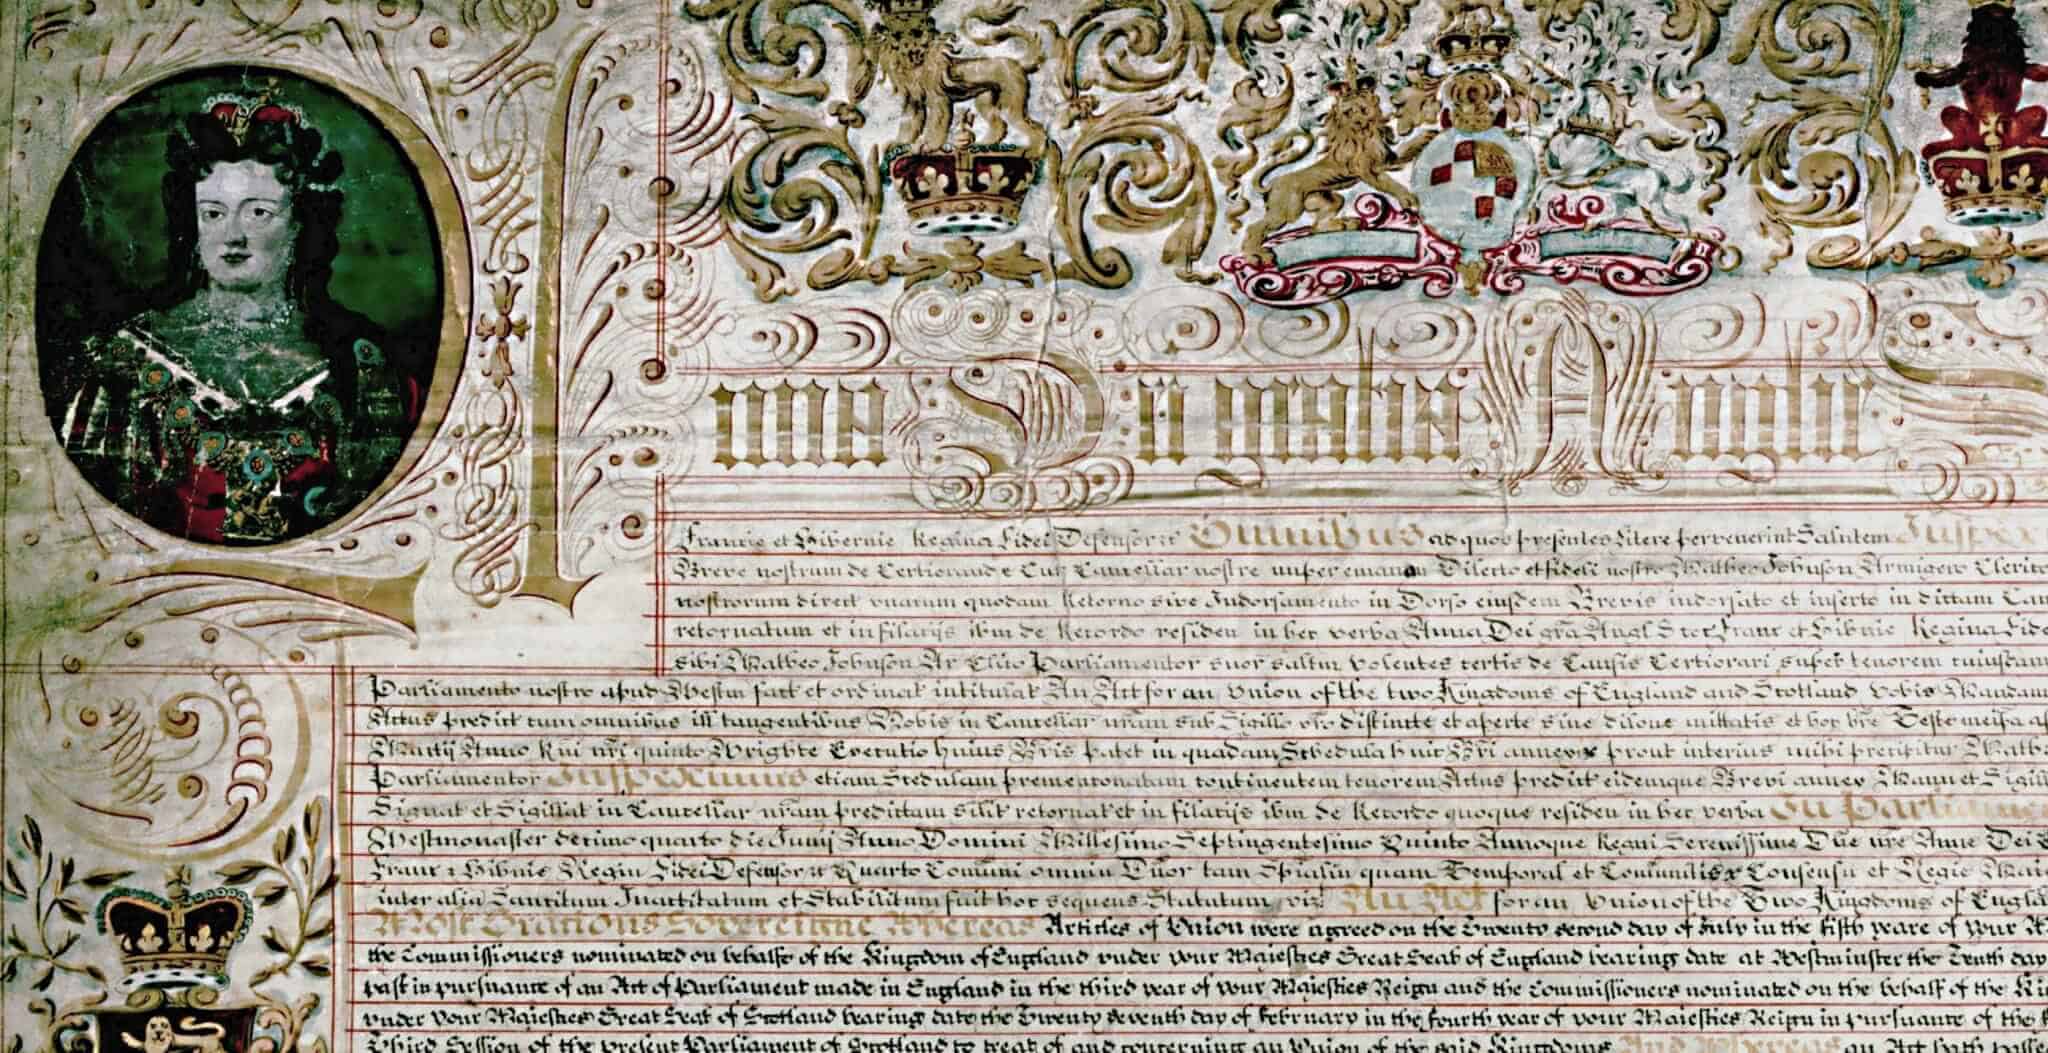 Anna Dei gratia Anglie S
Francie et Hibernie Regina Fidei Defensor &c Omnibus ad quos presentes Litere pervenerint Salutem Inspex
Breve nostrum de Certiorand e Cur Cancellar nostre nuper emanan Dilecto et fideli nostro Matheo Johnson Armigero Clerico
nostrorum direct unacum quodam Retorno sive Indorsamento in Dorso eiusdem Brevis indorsato et inserto in dictam Can
retornatum et in filacijs ibm de Recordo residen in hec verba Anna Dei gra Angl Scoc Franc et Hibnie Regina Fidei
sibi Matheo Johnson Ar Clico Parliamentor suor saltm volentes certis de Causis Certiorari super tenorem cuiusdam
Parliamento nostro apud Westm fact et ordinat intitulat An Act for an Union of the two Kingdoms of England and Scotland vobis Mandam
Actus predict cum omnibus ill tangentibus Nobis in Cancellar nram sub Sigillo vro distincte et aperte sine dilone mittatis et hoc bre Teste meipa ap
Martij Anno Rni nri quinto Wrighte Executio huius Bris patet in quadam Schedula huic Bri annex prout interius mihi precipitur Math
Parliamentor Inspeximus etiam Scedulam prementionatam continentem tenorem Actus predict eidemque Brevi annex Manu et Sigill
Signat et Sigillat in Cancellar nram predictam silit retornat et in filacijs ibm de Recordo quoque residen in hec verba In Parliame
Westmonaster decimo quarto die Junij Anno Domini Millesimo Septingentesimo Quinto Annoque Regni Serenissime Dne nre Anne Dei
Franc & Hibnie Regin Fidei Defensor &c Quarto Comuni omniu Dnor tam Spialiu quam Temporal et Comunilis Consensu et Regie Maie
inter alia Sancitum Inactitatum et Stabilitum fuit hoc sequens Statutum viz An Act for an Union of the Two Kingdoms of Engla
Most Gracious Sovereigne Whereas Articles of Union were agreed on the Twenty second day of July in the fifth yeare of your M
the Commissioners nominated on behalfe of the Kingdom of England under your Majesties Great Seal of England bearing date at Westminster the Tenth day
past in pursuance of an Act of Parliament made in England in the third year of your Majesties Reign and the Commissioners nominated on the behalf of the Ki
under your Majesties Great Seal of Scotland bearing date the Twenty seventh day of February in the fourth year of your Majesties Reign in pursuance of the
Third Session of the present Parliament of Scotland to treat of and concerning an Union of the said Kingdoms And Whereas an Act hath passe